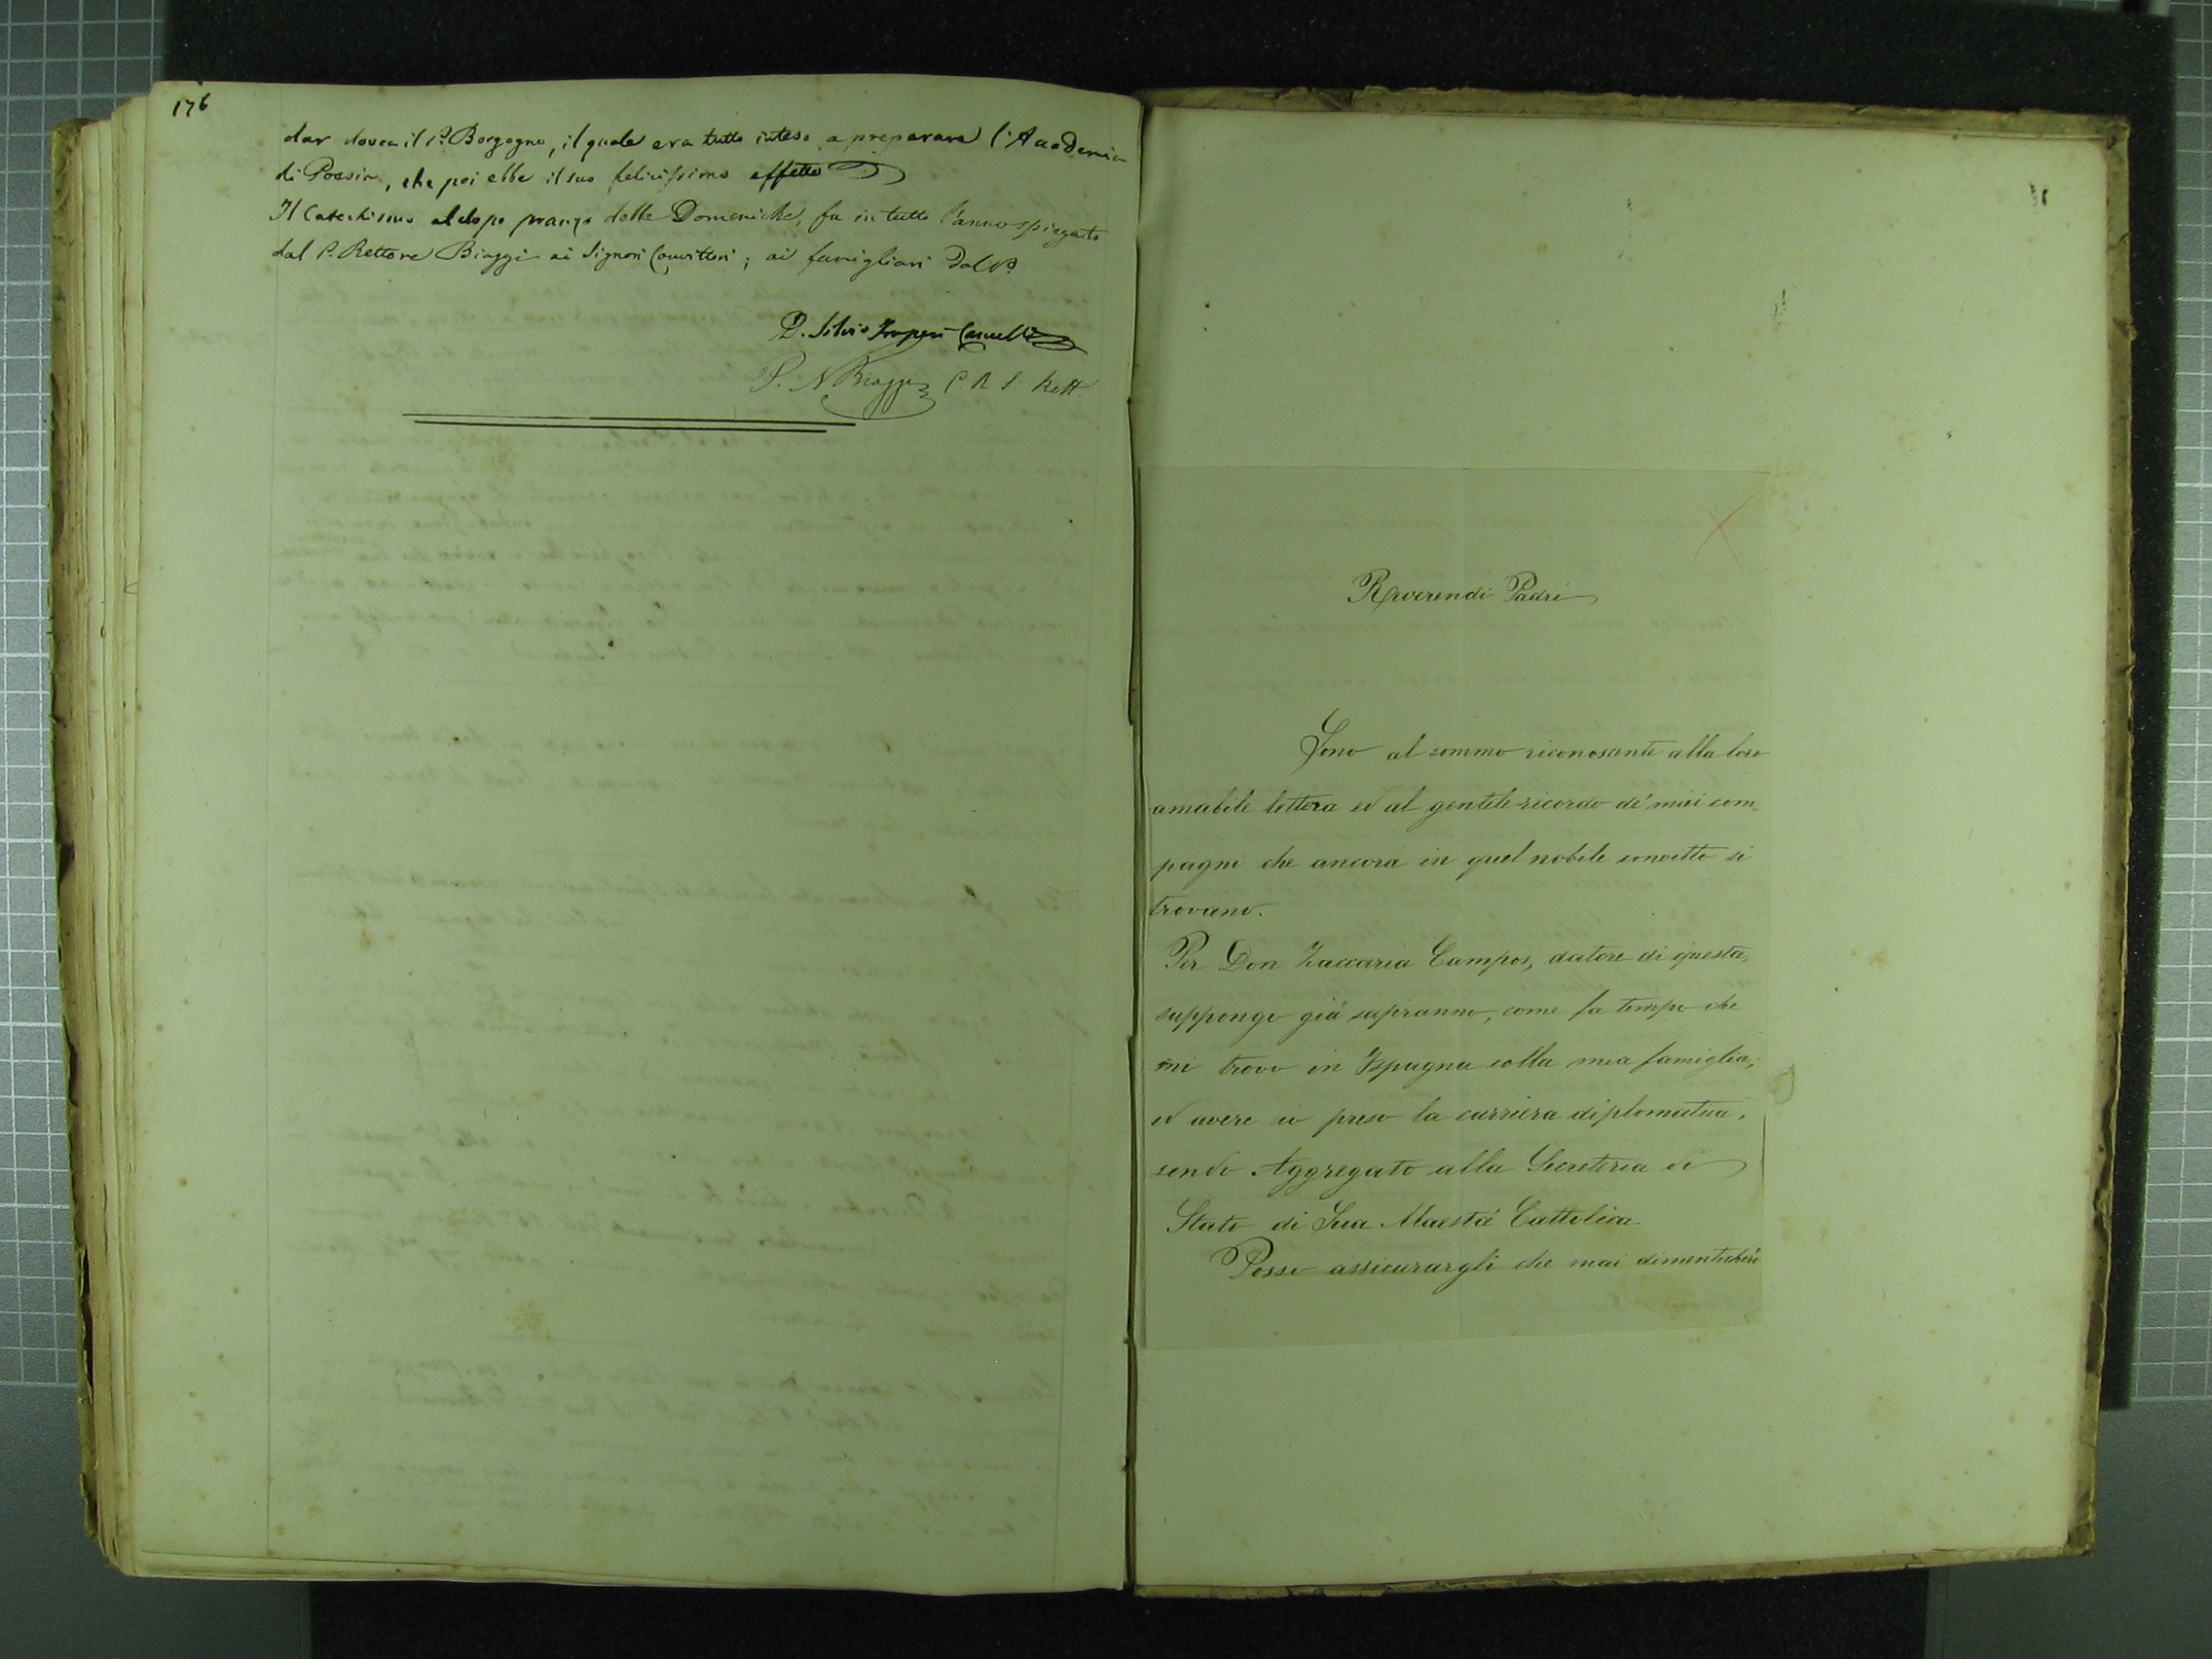 176
dar dovea il P. Borgogno, il quale era tutto inteso a preparare l'Accademia
di Poesia, che poi ebbe il suo felicissimo effetto
Il Catechismo al dopo pranzo delle Domeniche, fu in tutto l'anno spiegato
dal P. Rettore Biaggi ai Signori Convittori; ai famigliari Dal P.
D. Silvio Imperi Cancell.
P. N Biaggi C. R. S Rett.
Reverendi Padri
Sono al sommo riconoscente alla loro
amabile lettera ed al gentile ricordo de' miei com=
pagni che ancora in quel nobile convitto si
trovano.
Per Don Zaccaria Campos, datore di questa,
suppongo giá sapranno, come fa tempo che
mi trovo in Ispagna colla mia famiglia,
ed avere io preso la carriera diplomatica,
sendo Aggregato alla Secreteria di
Stato di Sua Maestá Cattolica.
Posso assicurargli che mai dimenticheró